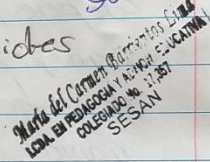 ides
María del Carmen Barrientos Lima
LCDA. EN PEDAGOGIA Y ADMON. EDUCATIVA
COLEGIADO No. 37,357
SESAN